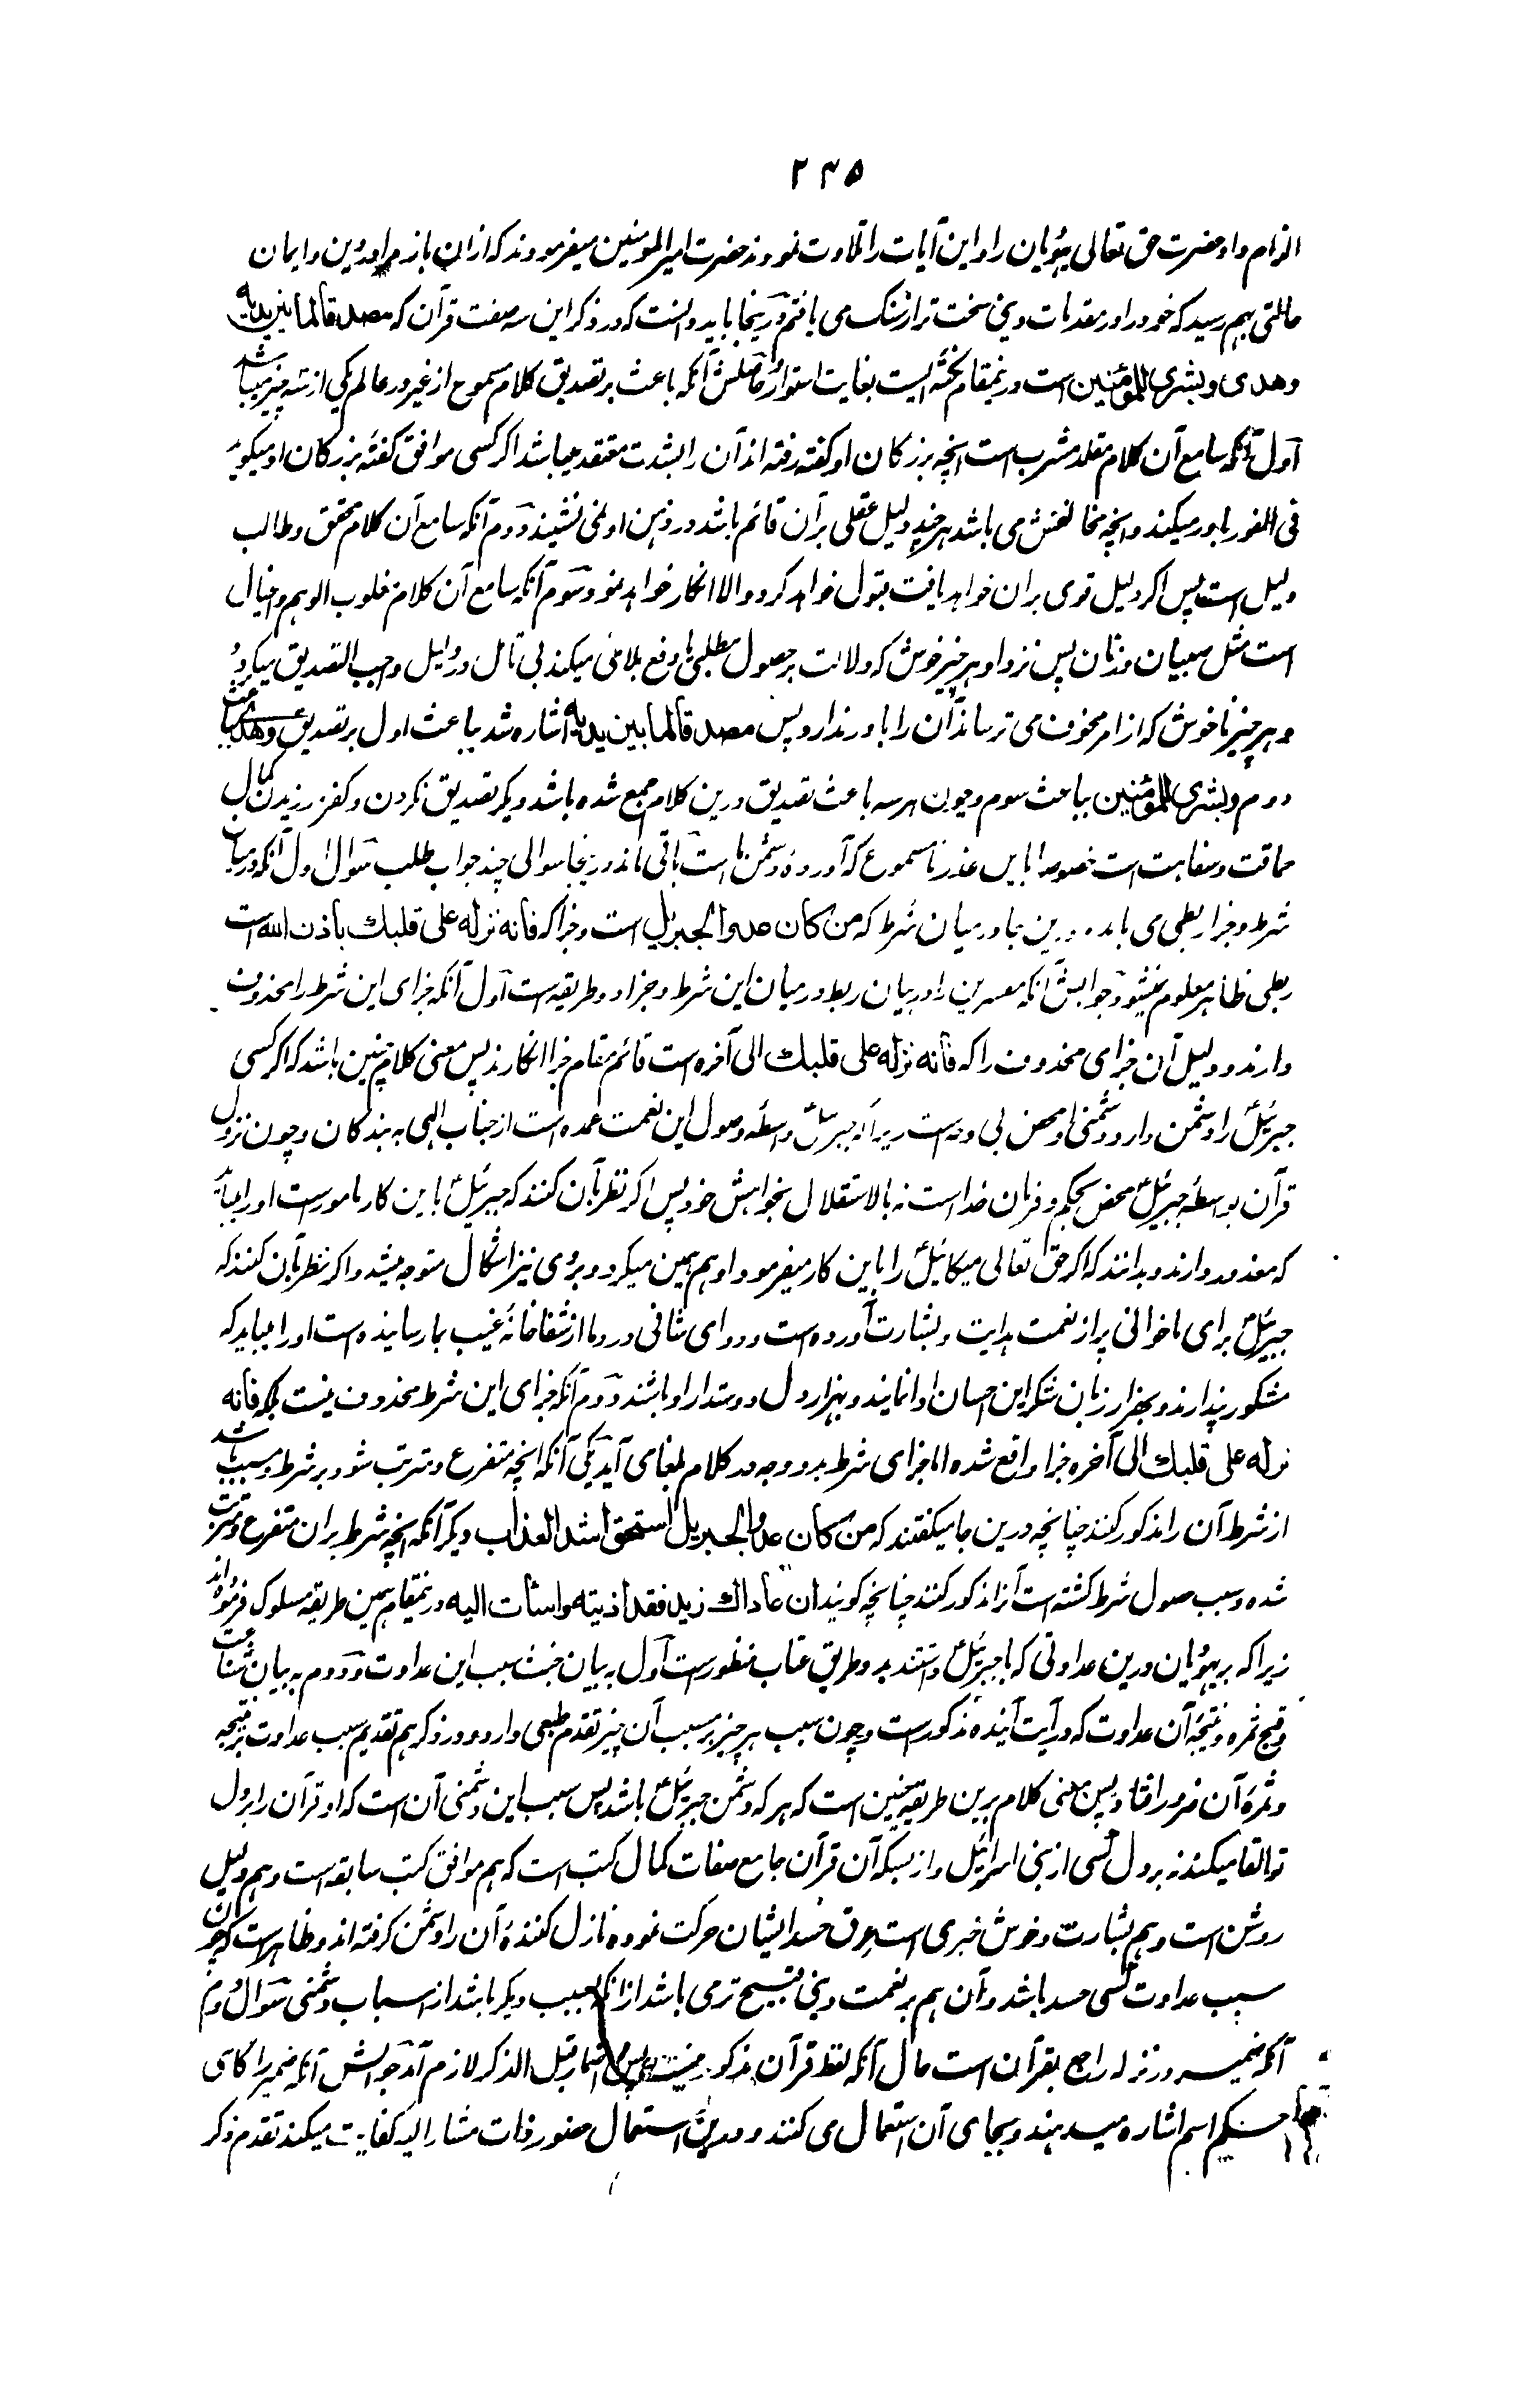 ۲۳۵
الزام داد حضرت حق تعالی یهودیان را و این آیات را تلاوت نمودند حضرت امیر المومنین میفرمودند که ازان باز مرا در دین و ایمان
حالتی بهم رسید که خود را در مقدمات دینی سخت تر از سنگ می یافتم و درینجا باید دانست که در ذکر این سه صفت قرآن که مصدقا لما بین یدیه
وهدی وبشری للمؤمنین است درینمقام نکته ایست بغایت استوار حاصلش آنکه باعث بر تصدیق کلام مسموع از غیر در عالم یکی از سه چیز میباشد
اول آنکه سامع آن کلام مقلد مشرب است انچه بزرگان او گفته رفته اند آن را بشدت معتقد میباشد اگر کسی موافق گفتهٔ بزرگان او میگوید
فی الفور باور میکند و انچه مخالفش می باشد هر چند دلیل عقلی بر آن قائم باشد در ذهن او نمی نشیند دوم آنکه سامع آن کلام محقق و طالب
دلیل است پس اگر دلیل قوی بران خواهد یافت قبول خواهد کرد و الا انکار خواهد نمود سوم آنکه سامع آن کلام مغلوب الوهم والخیال
است مثل صبیان و زنان پس نزد او هر خبر خوش که دلالت بر حصول مطلبی یا دفع بلائی میکند بی تامل در دلیل واجب التصدیق میگردد
و هر چیز ناخوش که از امر مخوف می ترساند آن را باور ندارد پس مصدقا لما بین یدیه اشاره شد بباعث اول بر تصدیق وهدی بباعث
دوم وبشری للمؤمنین بباعث سوم و چون هر سه باعث تصدیق درین کلام مجمع شده باشد دیگر تصدیق نکردن و کفر ورزیدن کمال
حماقت و سفاهت است خصوصا باین عذر نامسموع که آوردهٔ دشمن ما است باقی ماند درینجا سوالی چند جواب طلب سوال اول آنکه درمیان
شرط و جزا ربطی می باید و درین جا درمیان شرط که من کان عدوا لجبریل است و جزا که فانه نزله علی قلبك باذن الله است
ربطی ظاهر معلوم نمیشود جوابش آنکه مفسرین را در بیان ربط درمیان این شرط و جزا دو طریقه است اول آنکه جزای این شرط را محذوف
دارند و دلیل آن جزای محذوف را که فانه نزله علی قلبك الی آخره است قائم مقام جزا انگارند پس معنی کلام چنین باشد که اگر کسی
جبرئیل را دشمن دارد دشمنی او محض بی وجه است زیرا که جبرئیل واسطهٔ وصول این نعمت عمده است از جناب الهی به بندگان و چون نزول
قرآن بواسطهٔ جبرئیل محض بحکم و فرمان خداست نه بالاستقلال بخواهش خود پس اگر نظر بآن کنند که جبرئیل باین کار مامورست او را میباید
که معذور دارند و بدانند که اگر حق تعالی میکائیل را باین کار میفرمود او هم همین میکرد و بروی نیز اشکال متوجه میشد و اگر نظر بآن کنند که
جبرئیل برای ما خوانی پر از نعمت هدایت و بشارت آورده است و دوای شافی درد ما از شفاخانهٔ غیب بما رسانیده است او را میباید که
مشکور پندارند و بهزار زبان شکر این احسان ادا نمایند و بهزار دل دوستدار او باشند دوم آنکه جزای این شرط محذوف نیست بلکه فانه
نزله علی قلبك الی آخره جزا واقع شده اما جزای شرط بدو وجه در کلام بلغا می آید یکی آنکه انچه متفرع و مترتب شود بر شرط و مسبب باشد
از شرط آن را مذکور کنند چنانچه درین جا میگفتند که من کان عدوا لجبریل استحق اشد العذاب دیگر آنکه انچه شرط بران متفرع و مترتب
شده و سبب حصول شرط گشته است آنرا مذکور کنند چنانچه گویند ان عاداك زید فقد اذیته واسأت الیه درینمقام همین طریقه مسلوک فرموده اند
زیرا که بر یهودیان درین عداوتی که با جبرئیل داشتند بدو طریق عتاب منظور است اول به بیان خبث سبب این عداوت و دوم به بیان شناعت
و قبح ثمره و نتیجهٔ آن عداوت که در آیت آینده مذکورست و چون سبب هر چیز بر مسبب آن چیز تقدم طبعی دارد در ذکر هم تقدیم سبب عداوت بر نتیجه
و ثمرهٔ آن ضرور افتاد پس معنی کلام برین طریقه چنین است که هر که دشمن جبرئیل باشد پس سبب این دشمنی آن است که او قرآن را بر دل
تو القا میکند نه بر دل کسی از بنی اسرائیل و از بسکه آن قرآن جامع صفات کمال کتب است که هم موافق کتب سابقه است و هم دلیل
روشن است و هم بشارت و خوش خبری است عرق حسد ایشان حرکت نموده نازل کنندهٔ آن را دشمن گرفته اند و ظاهرست که چون
سبب عداوت کسی حسد باشد و آن هم بر نعمت دینی قبیح تر می باشد از آنکه بسبب دیگر باشد از اسباب دشمنی سوال دوم
آنکه ضمیر در نزله راجع بقرآن است حال آنکه لفظ قرآن مذکور نیست پس اضمار قبل الذکر لازم آمد جوابش آنکه ضمیر را گاهی
حکم اسم اشاره میدهند و بجای آن استعمال می کنند و درین استعمال حضور ذات مشار الیه کفایت میکند تقدم ذکر